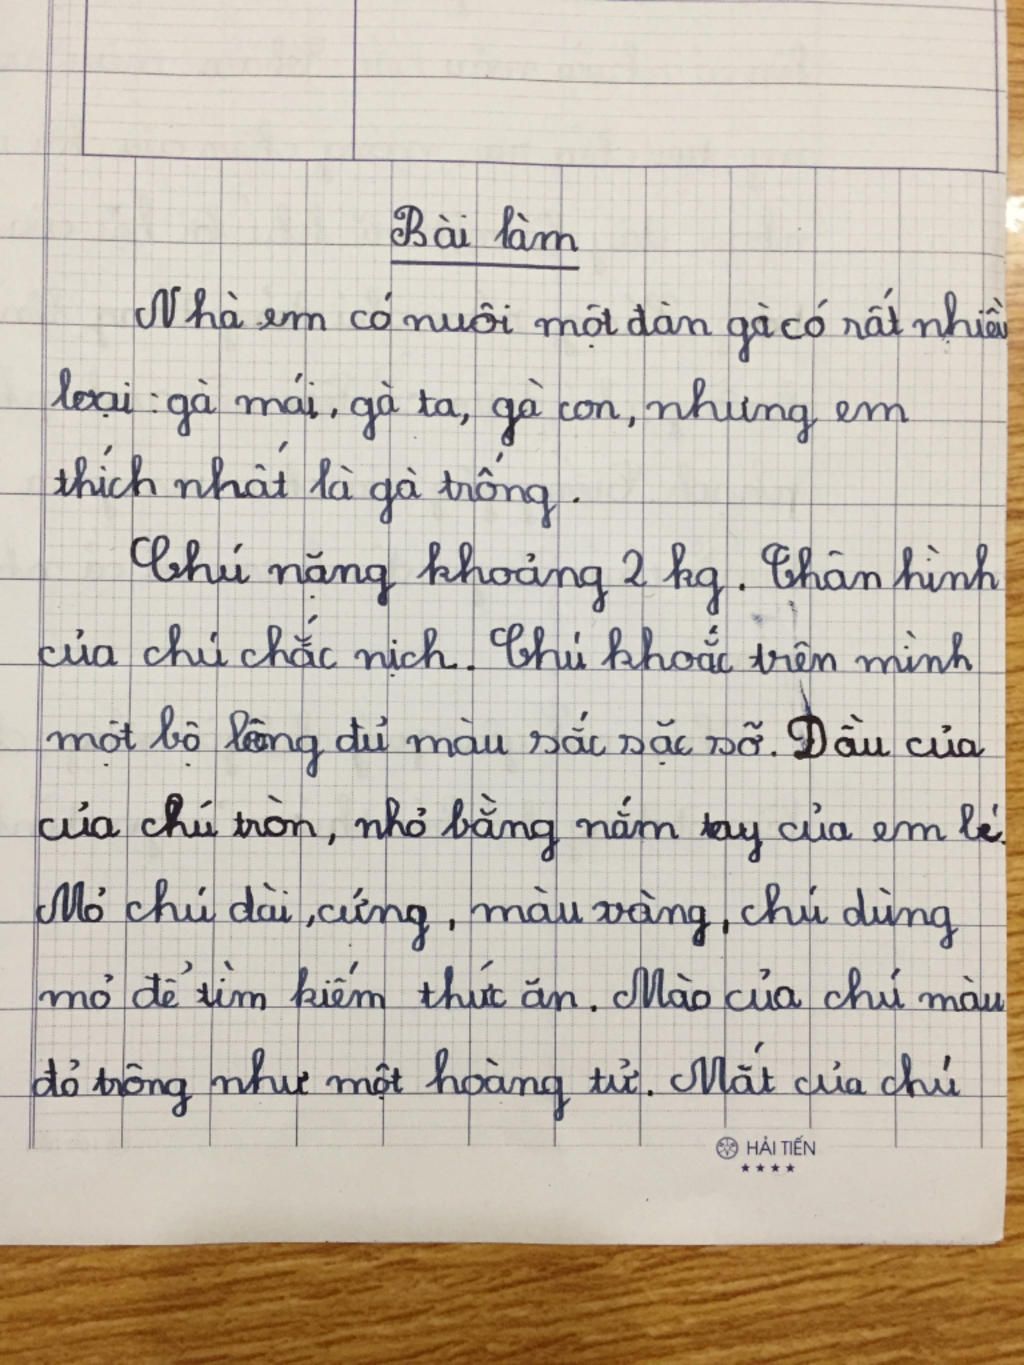 Bài làm
Nhà em có nuôi một đàn gà có rất nhiều
loại : gà mái, gà ta, gà con, nhưng em
thích nhất là gà trống.
Chú nặng khoảng 2 kg. Thân hình
của chú chắc nịch. Chú khoắc trên mình
một bộ lông đủ màu sắc sặc sỡ. Dầu của
của chú tròn, nhỏ bằng nắm tay của em bé.
Mỏ chú dài, cứng, màu vàng, chú dùng
mỏ để tìm kiếm thức ăn. Mào của chú màu
đỏ trông như một hoàng tử. Mắt của chú
HẢI TIẾN